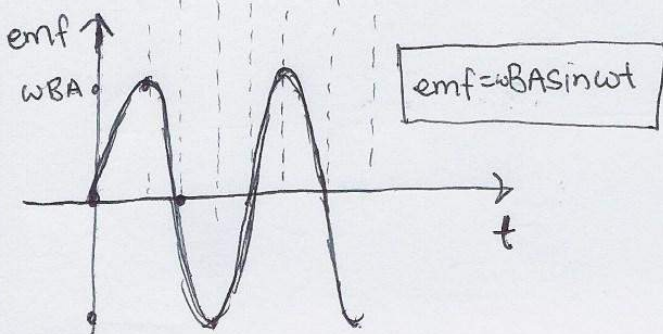 emf
ωBA
emf=ωBAsinωt
t